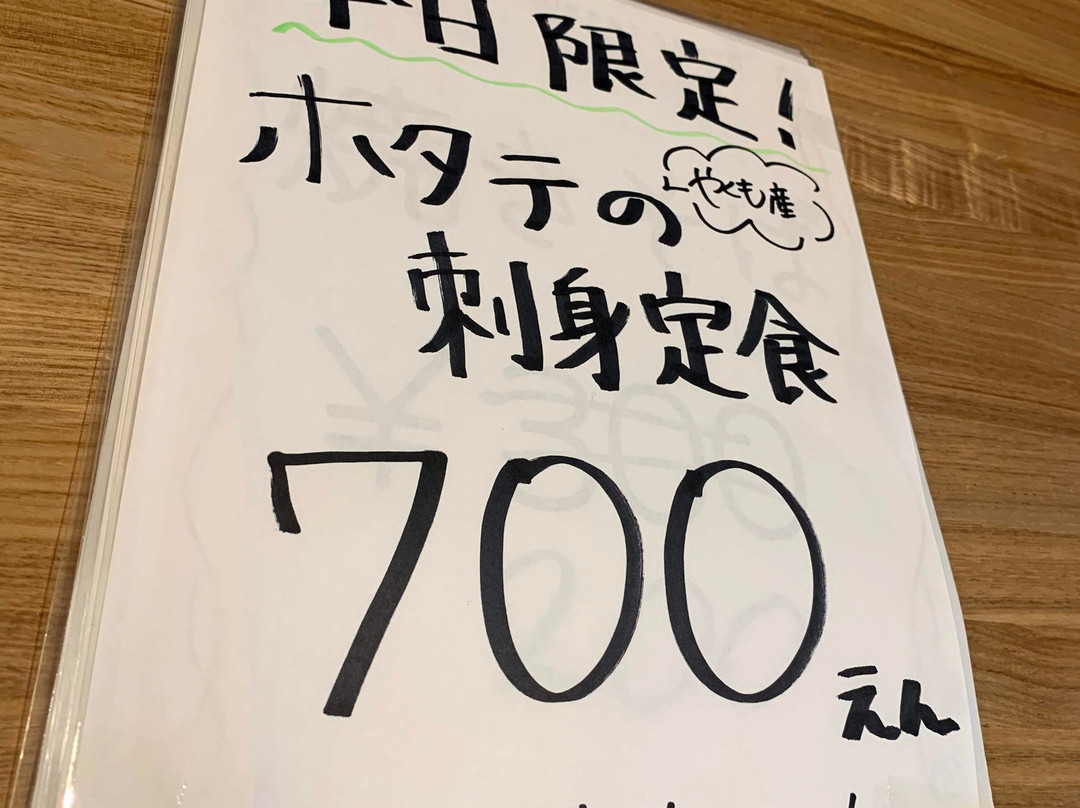 平日限定!
ホタテの
やくも産
刺身定食
700えん